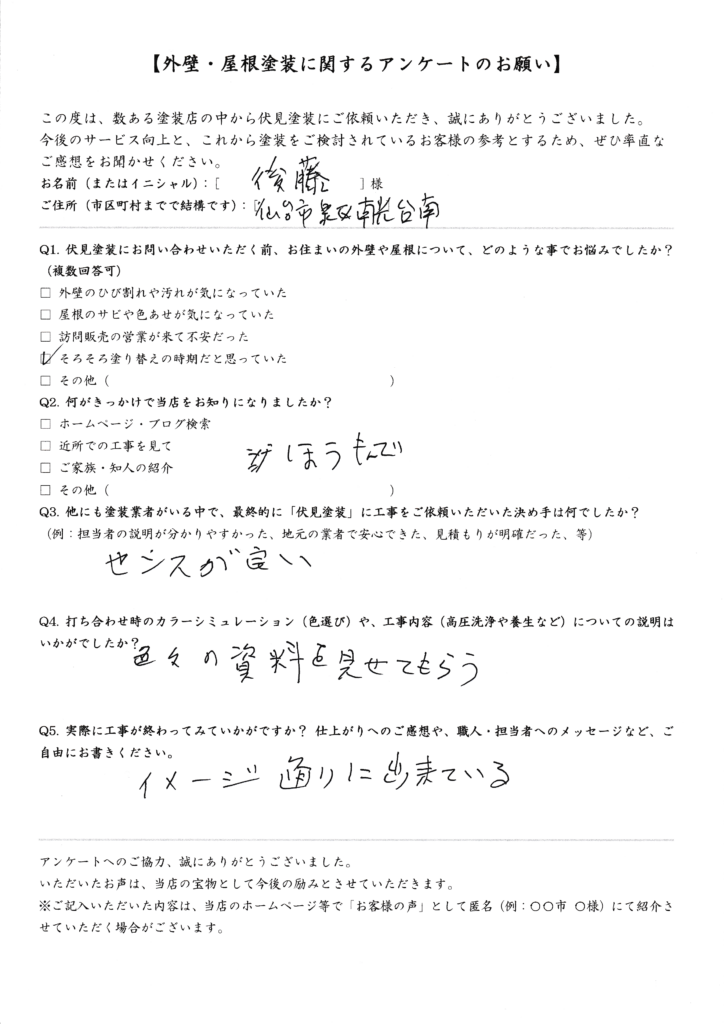 【外壁・屋根塗装に関するアンケートのお願い】
この度は、数ある塗装店の中から伏見塗装にご依頼いただき、誠にありがとうございました。
今後のサービス向上と、これから塗装をご検討されているお客様の参考とするため、ぜひ率直な
ご感想をお聞かせください。
お名前（またはイニシャル）：[ 後藤 ] 様
ご住所（市区町村までで結構です）：[仙台市泉区南光台南
Q1. 伏見塗装にお問い合わせいただく前、お住まいの外壁や屋根について、どのような事でお悩みでしたか？
（複数回答可）
□ 外壁のひび割れや汚れが気になっていた
□ 屋根のサビや色あせが気になっていた
□ 訪問販売の営業が来て不安だった
☑ そろそろ塗り替えの時期だと思っていた
□ その他（ ）
Q2. 何がきっかけで当店をお知りになりましたか？
□ ホームページ・ブログ検索
□ 近所での工事を見て
□ ご家族・知人の紹介
ほうもんで
□ その他（ ）
Q3. 他にも塗装業者がいる中で、最終的に「伏見塗装」に工事をご依頼いただいた決め手は何でしたか？
（例：担当者の説明が分かりやすかった、地元の業者で安心できた、見積もりが明確だった、等）
センスが良い
Q4. 打ち合わせ時のカラーシミュレーション（色選び）や、工事内容（高圧洗浄や養生など）についての説明は
いかがでしたか？
色々の資料を見せてもらう
Q5. 実際に工事が終わってみていかがですか？ 仕上がりへのご感想や、職人・担当者へのメッセージなど、ご
自由にお書きください。
イメージ通りに出来ている
アンケートへのご協力、誠にありがとうございました。
いただいたお声は、当店の宝物として今後の励みとさせていただきます。
※ご記入いただいた内容は、当店のホームページ等で「お客様の声」として匿名（例：〇〇市 〇様）にて紹介さ
せていただく場合がございます。